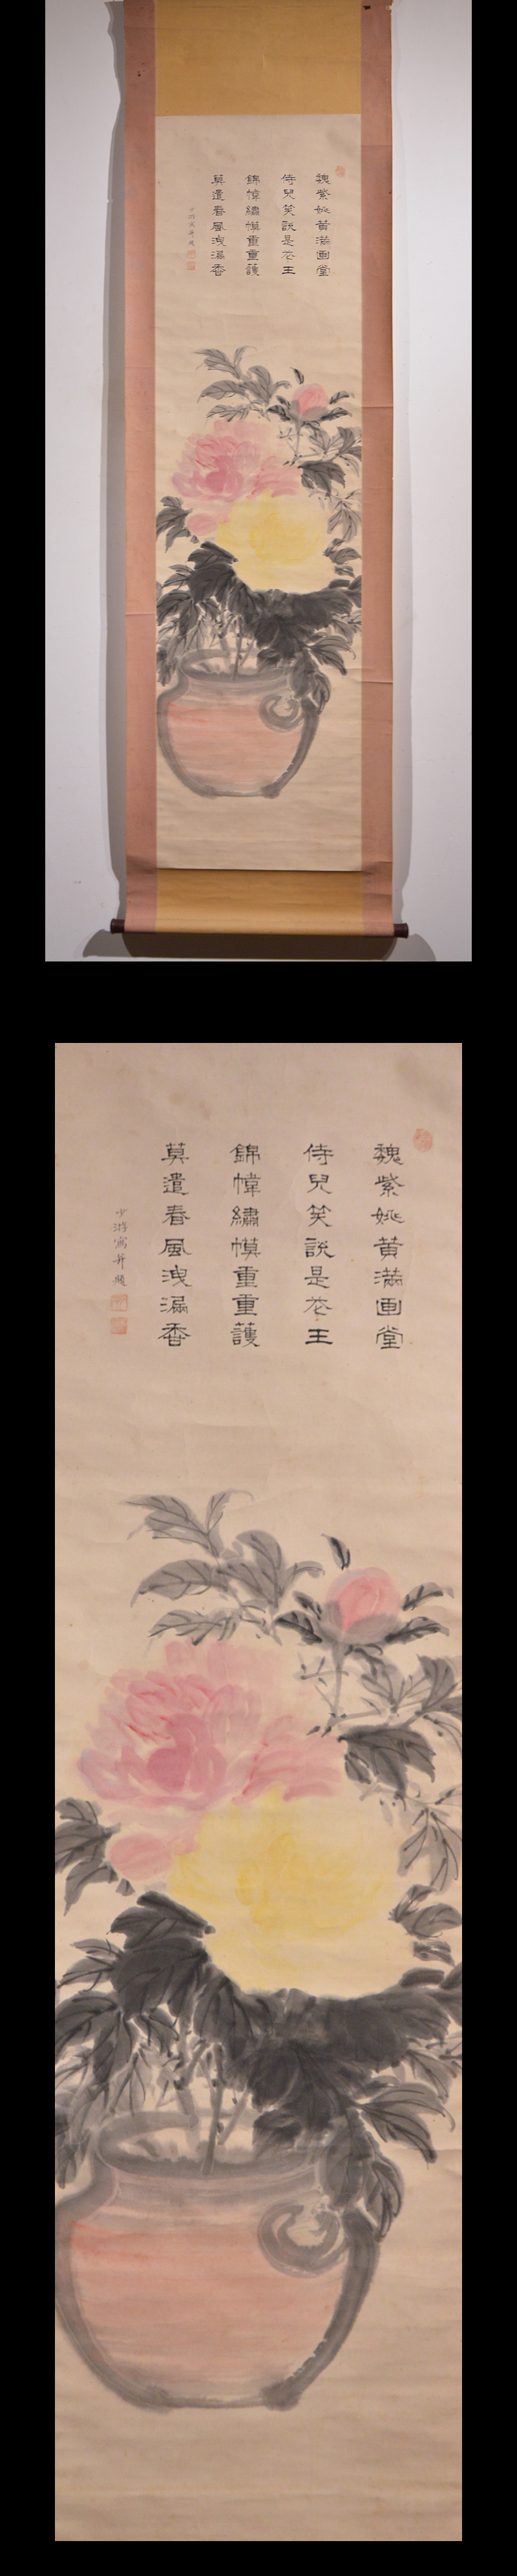 魏紫姚黃滿画堂
侍兒笑說是花王
錦幃繡幙重重護
莫遣春風洩漏香
少游寫并題
魏紫姚黃滿画堂
侍兒笑說是花王
錦幃繡幙重重護
莫遣春風洩漏香
少游寫并題